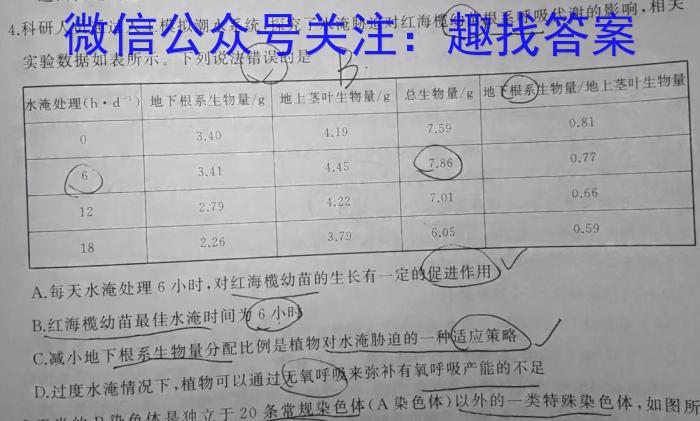 微信公众号关注：趣找答案
4.科研人 模拟潮水系统 探究了水淹胁迫对红海榄 根系呼吸代谢的影响，相关
实验数据如表所示。下列说法错误的是 B.
水淹处理(h·d⁻¹) 地下根系生物量/g 地上茎叶生物量/g 总生物量/g 地下根系生物量/地上茎叶生物量
0 3.40 4.19 7.59 0.81
6 3.41 4.45 7.86 0.77
12 2.79 4.22 7.01 0.66
18 2.26 3.79 6.05 0.59
A.每天水淹处理 6 小时，对红海榄幼苗的生长有一定的促进作用
B.红海榄幼苗最佳水淹时间为 6 小时
C.减小地下根系生物量分配比例是植物对水淹胁迫的一种适应策略
D.过度水淹情况下，植物可以通过无氧呼吸来弥补有氧呼吸产能的不足
的 B 染色体是独立于 20 条常规染色体(A 染色体)以外的一类特殊染色体，如图所